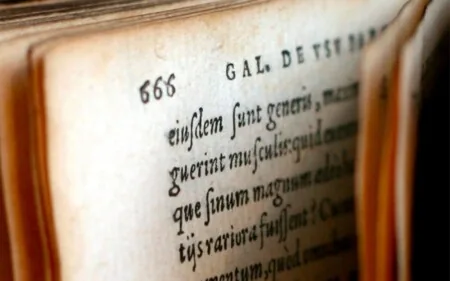 666 GAL. DE VSV PAR
eiusdem sunt generis, maxim
guerint musculis: quid enim
que sinum magnum
tijs rariora fuissent? Cum
mentum, quod